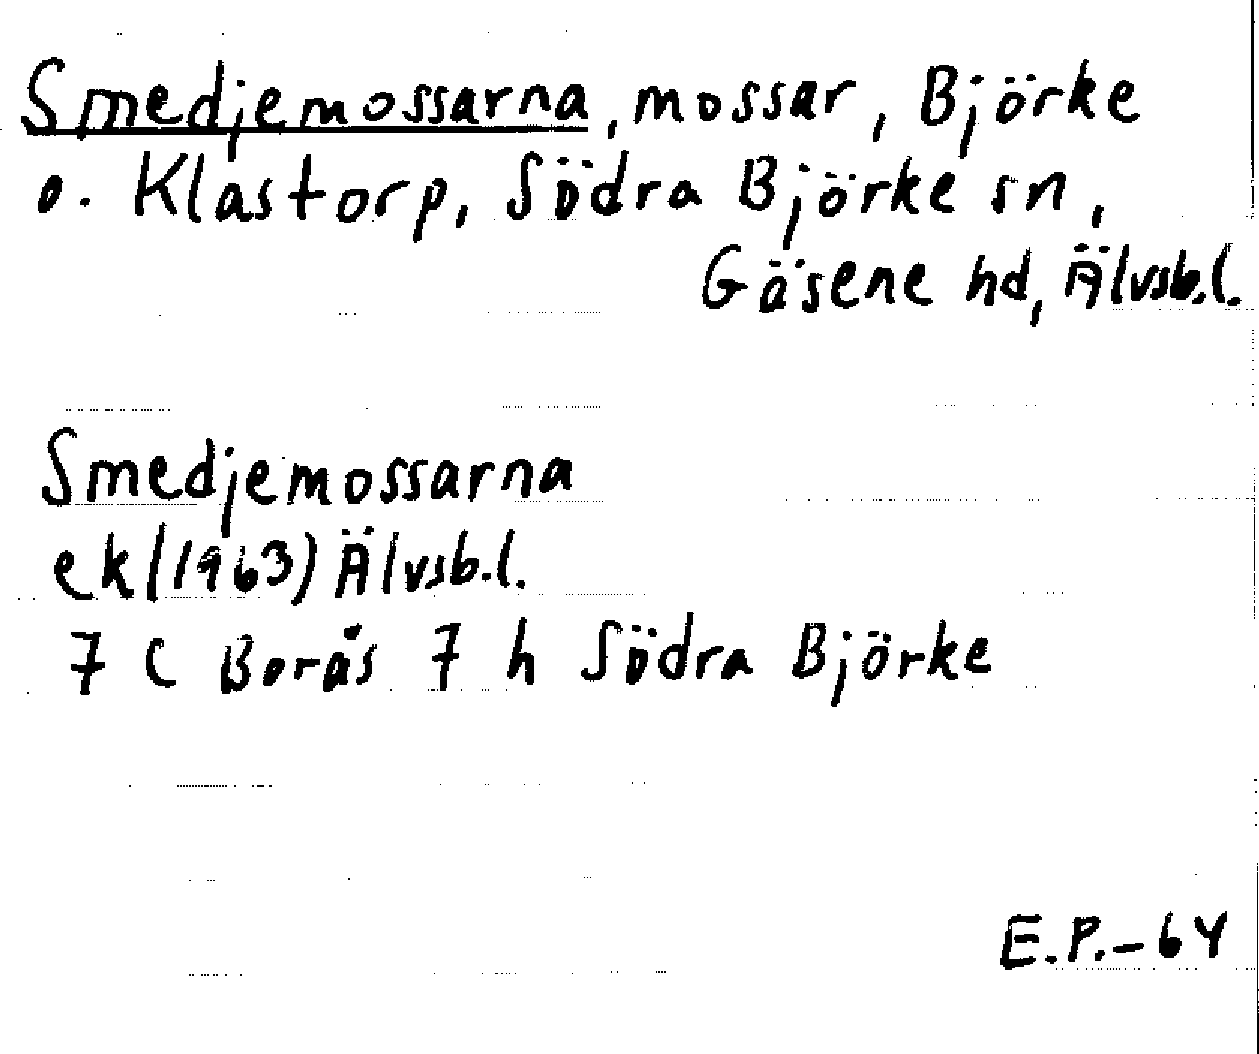 Smedjemossarna, mossar, Björke
o. Klastorp, Södra Björke sn,
Gäsene hd, Älvsb.l.
Smedjemossarna
ek (1963) Älvsb.l.
7 C Borås 7 h Södra Björke
E.P.-64